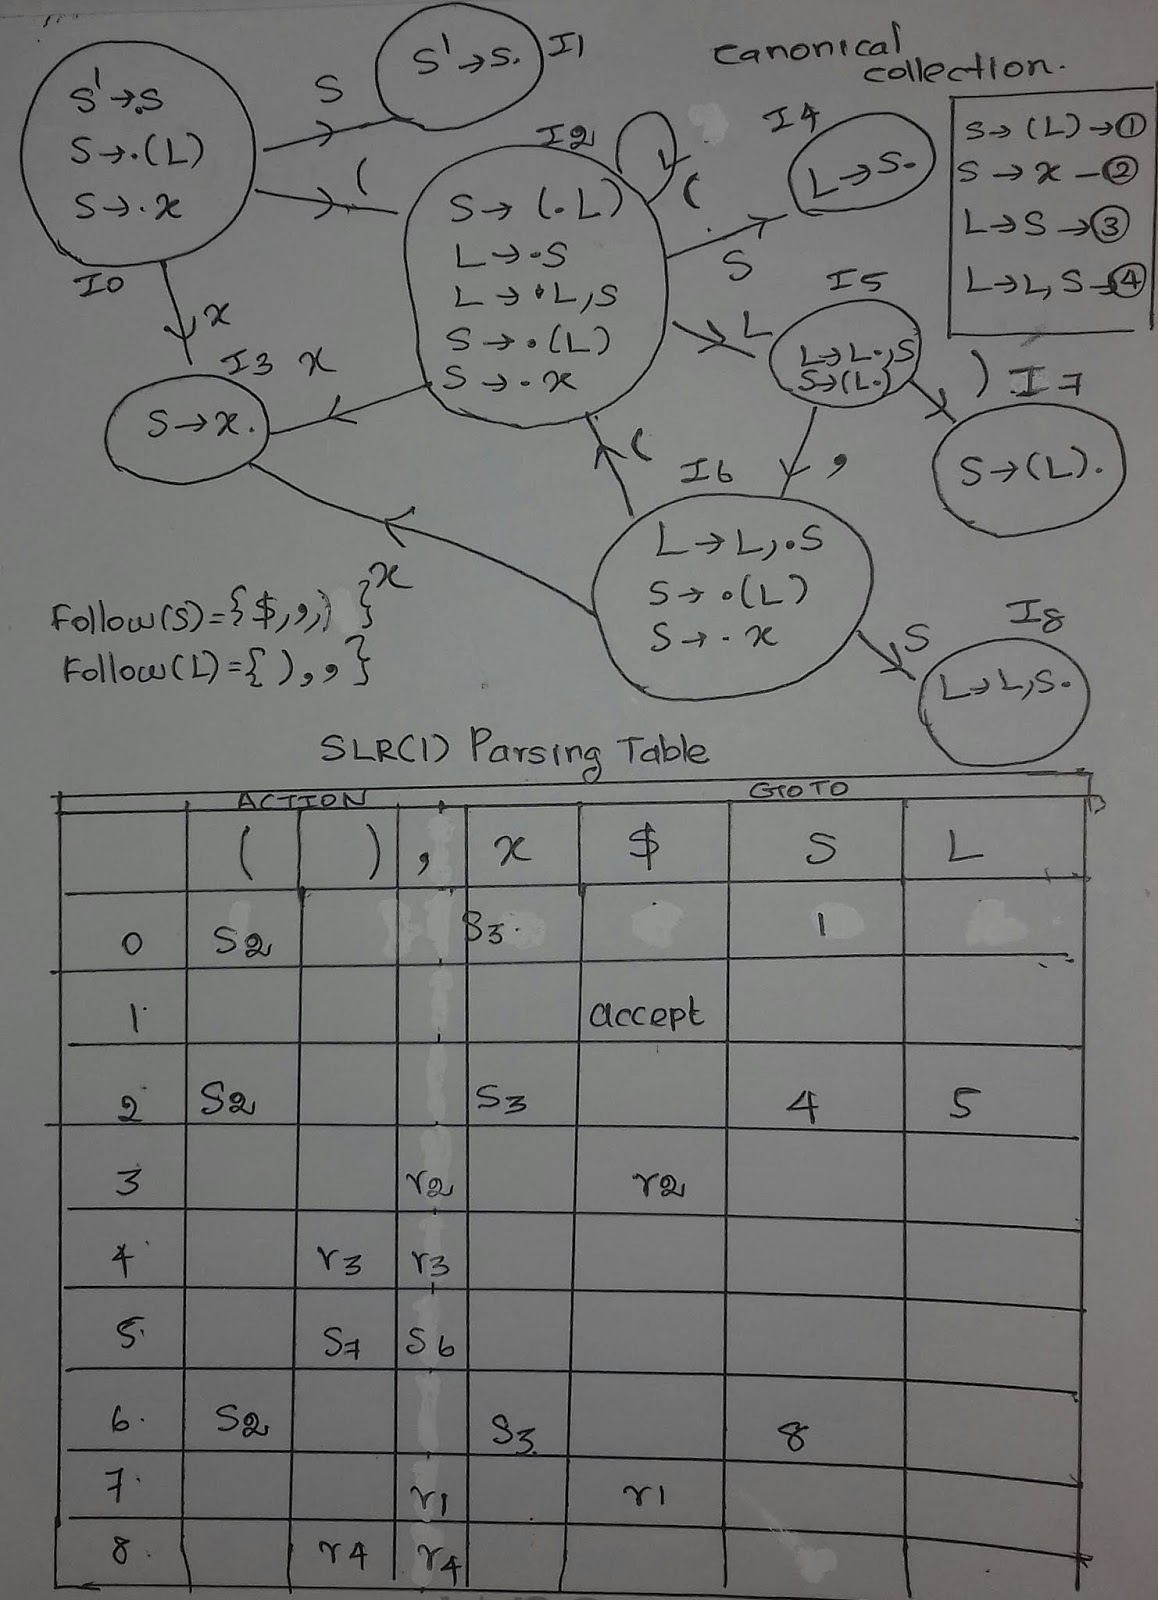 canonical
collection.
S' → S. I1
S' → .S
S → .(L)
S → .x
I0
S
(
x
I2
S → (.L)
L → .S
L → .L,S
S → .(L)
S → .x
(
I4
L → S.
S
S → (L) → ①
S → x - ②
L → S → ③
L → L,S → ④
L
I5
L → L.,S
S → (L.)
) I7
S → (L).
I3 x
S → x.
(
,
I6
L → L,.S
S → .(L)
S → .x
x
S
I8
L → L,S.
Follow(S)={$,,,) }
Follow(L)={ ),, }
SLR(1) Parsing Table
ACTION GOTO
( ) , x $ S L
0 S2 S3. 1
1. accept
2 S2 S3 4 5
3 r2 r2
4 r3 r3
5. S7 S6
6. S2 S3 8
7. r1 r1
8. r4 r4